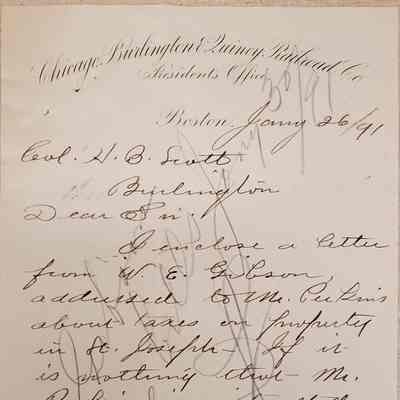 Chicago, Burlington & Quincy Railroad Co
Presidents Office
Boston, Jany 26/91
30/91
Col. H. B. Scott
Burlington
Dear Sir.
I enclose a letter
from W. E. Gibson,
addressed to Mr. Perkins
about taxes on property
in St. Joseph - If it
is nothing that Mr.